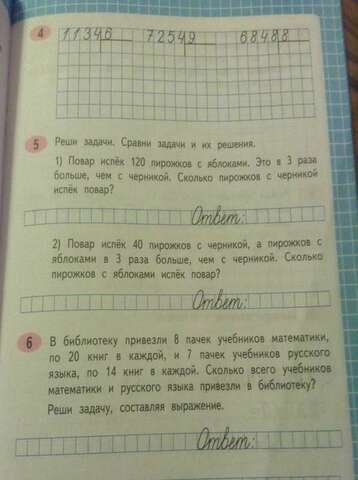 4
11346 72549 68488
5 Реши задачи. Сравни задачи и их решения.
1) Повар испёк 120 пирожков с яблоками. Это в 3 раза
больше, чем с черникой. Сколько пирожков с черникой
испёк повар?
Ответ:
2) Повар испёк 40 пирожков с черникой, а пирожков с
яблоками в 3 раза больше, чем с черникой. Сколько
пирожков с яблоками испёк повар?
Ответ:
6 В библиотеку привезли 8 пачек учебников математики,
по 20 книг в каждой, и 7 пачек учебников русского
языка, по 14 книг в каждой. Сколько всего учебников
математики и русского языка привезли в библиотеку?
Реши задачу, составляя выражение.
Ответ: